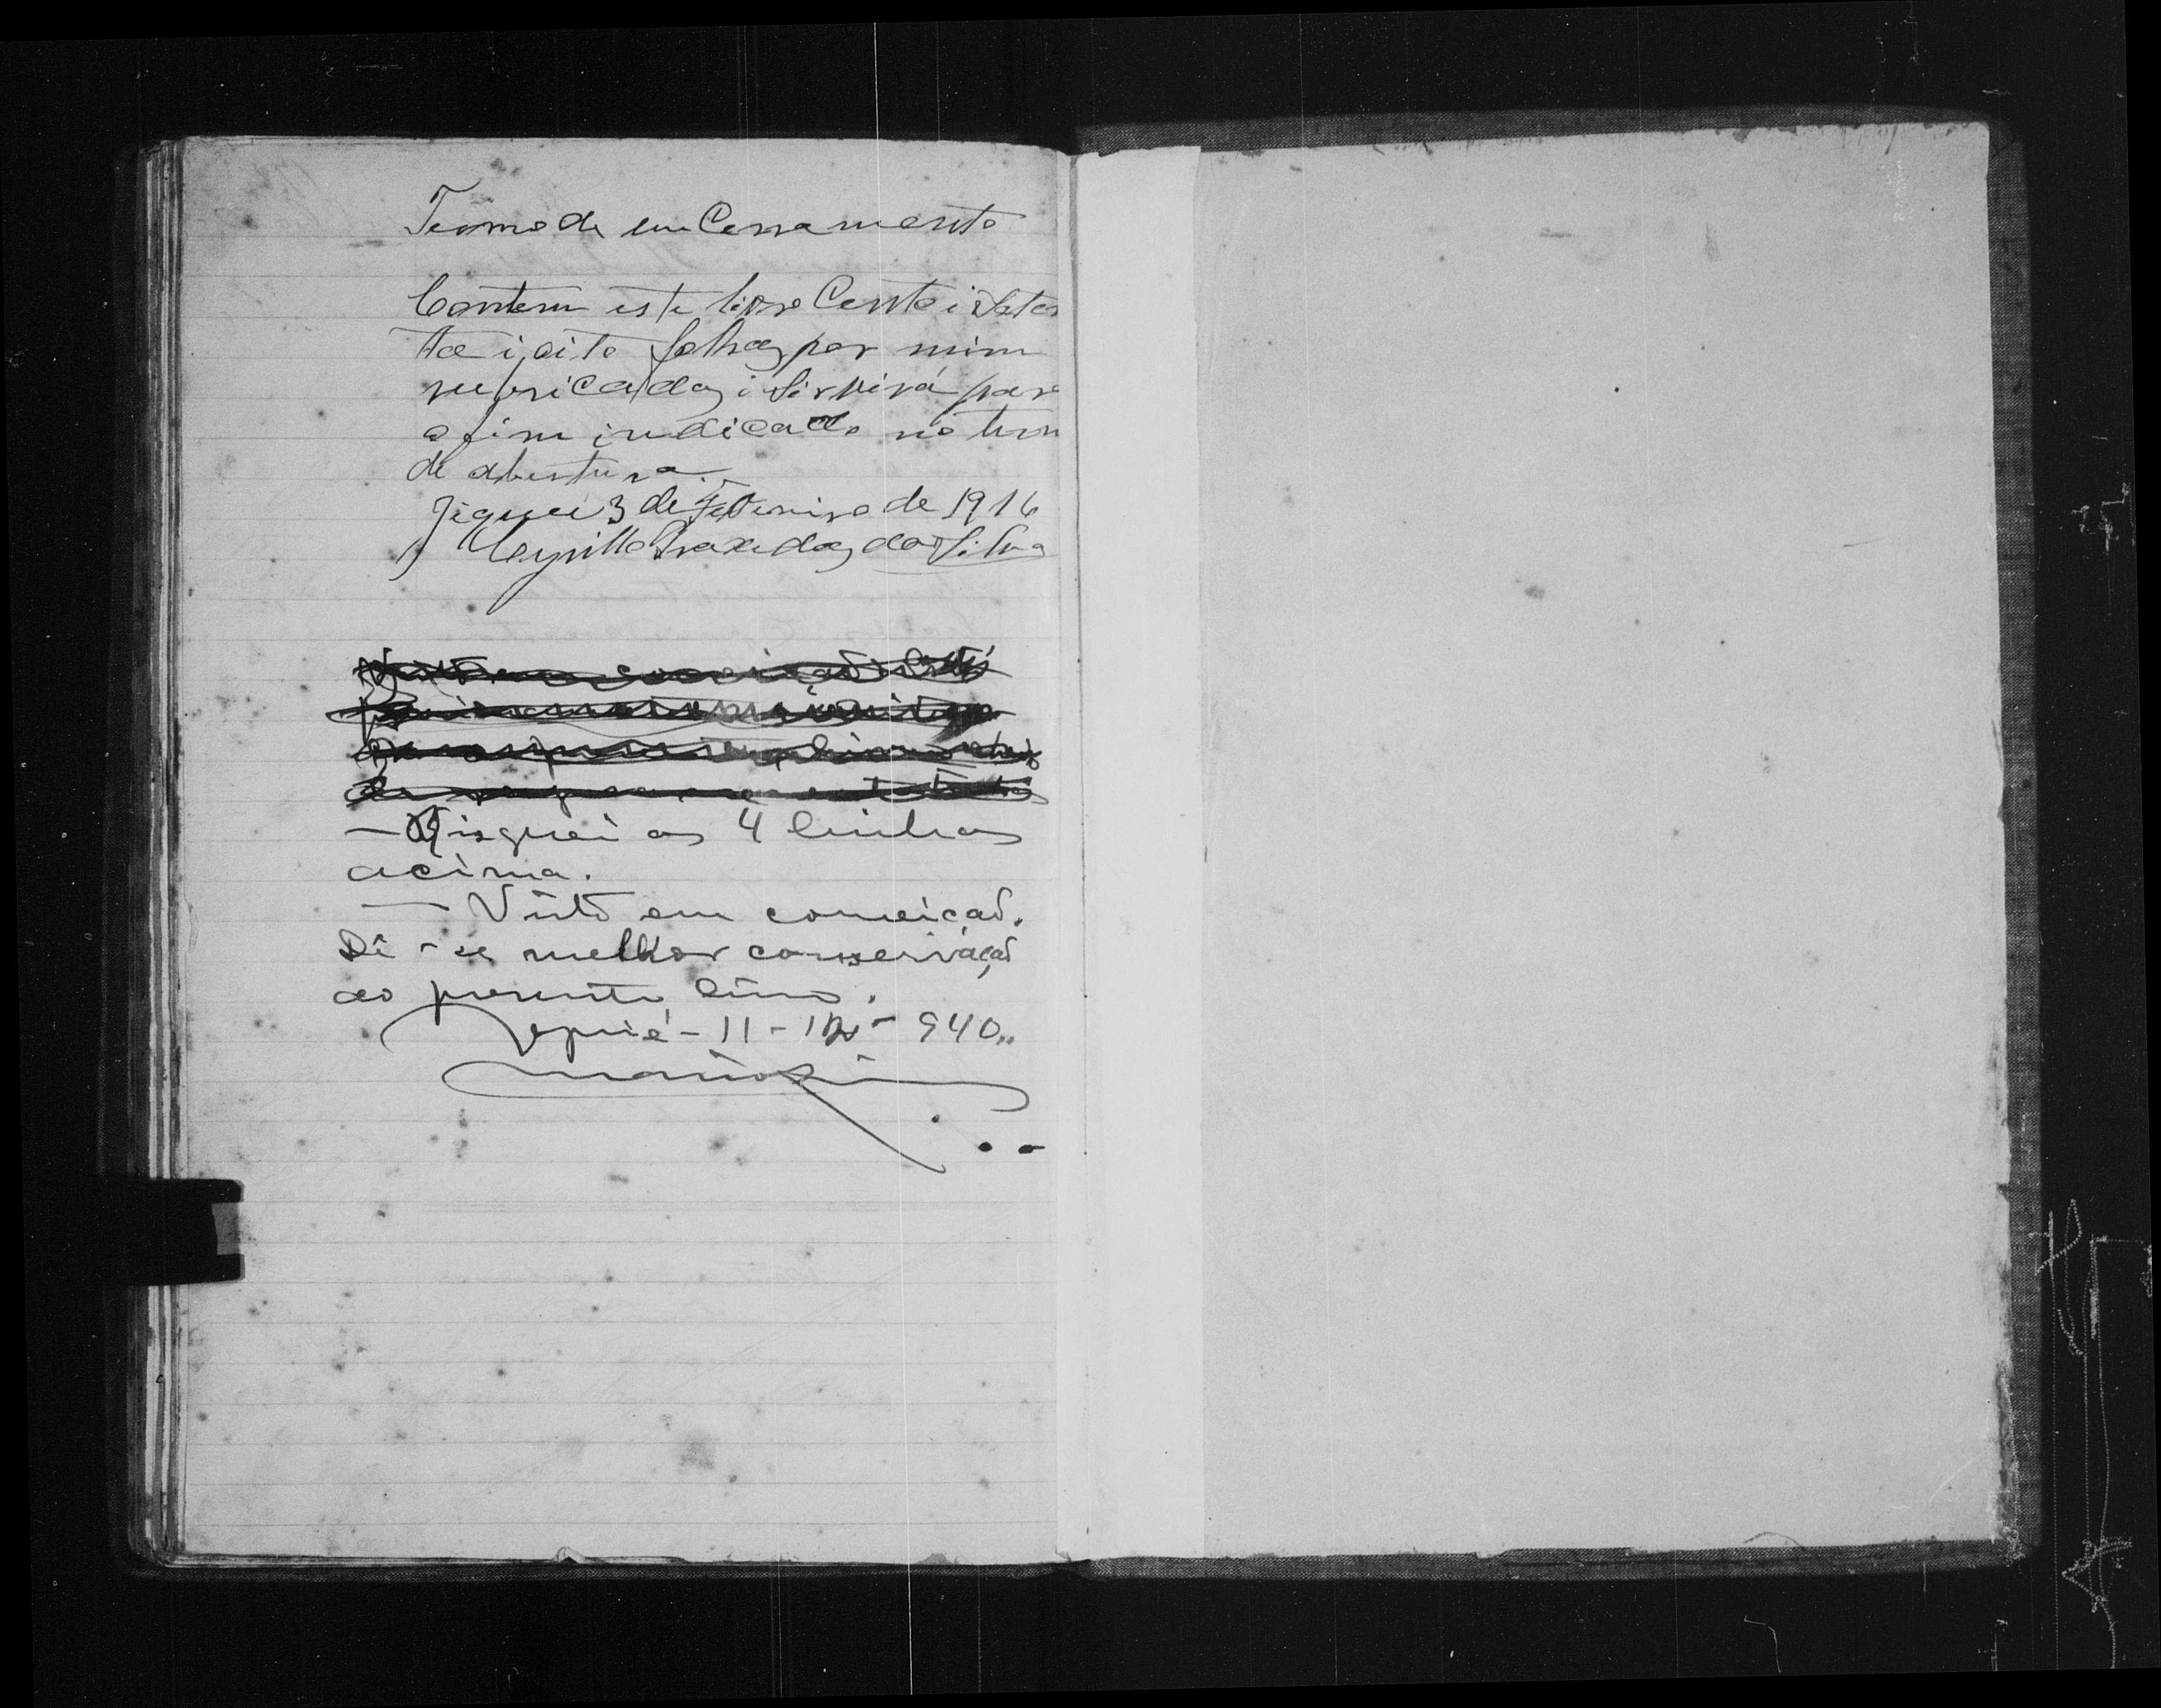 Termo de encerramento
Contem este livro Cento i Seten
ta i oito folhas por mim
rubricadas i sirvirá para
o fim indicado no term
de abertura.
Jiquié 3 de Setembro de 1916
Cyrillo Praxedes da Silva
— Risquei as 4 linhas
acima.
— Visto em correição.
Dê-se melhor conservação
ao presente livro.
Jequié - 11 - 12 - 940